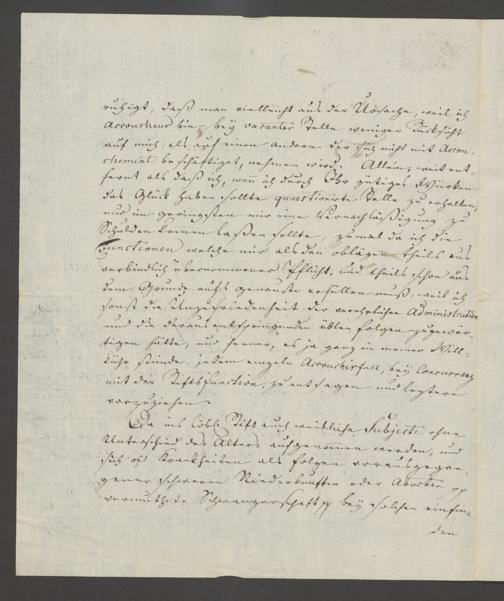 ruhigt, daß man vielleicht aus der Ursache, weil ich
Accoucheur bin, bey vacanter Stelle weniger Rücksicht
auf mich, als auf einen Andern der sich nicht mit Accou-
chement beschäftiget, nehmen wird. Allein, weit ent-
fernt als daß ich, wenn ich durch Ihr gütiges Würken
das Glück haben sollte quaestionirte Stelle zu erhalten,
nur im geringsten mir eine Vernachläßigung zu
Schulden kommen laßen sollte, zumal da ich die
Functionen welche mir als dann oblägen theils aus
verbindlich übernommener Pflicht, und theils schon aus
dem Grunde aufs genauste erfüllen muß, weil ich
sonst die Unzufriedenheit der verehrlichen Administration
und die daraus entspringenden üblen Folgen zu gewär-
tigen hätte, und ferner, es ja ganz in meiner Will-
kühr stünde, jedem einzeln Accouchirfall, bey Concurrenz
mit der Stiftsfunction, zu entsagen und leztere
vorzuziehen.
Da ins löbl. Stift auch weibliche Subjecte ohne
Unterschied des Alters aufgenommen werden, und
sich oft Krankheiten als Folgen vorausgegan-
gener schweren Niederkunften oder Aborten pp
vermuthete Schwangerschaft pp bey solchen einfin-
den